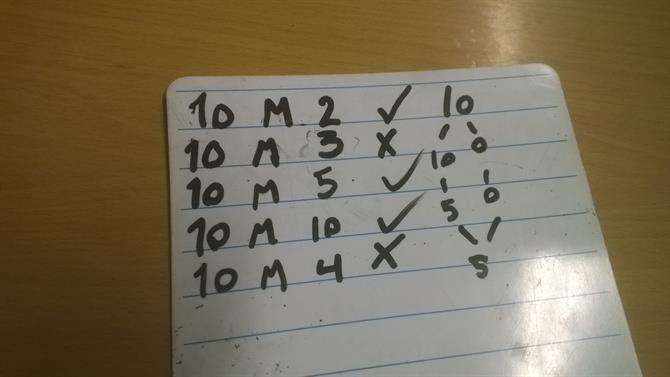 10 M 2 ✓ 10
10 M 3 X 10 0
10 M 5 ✓ 5 0
10 M 10 ✓ 5
10 M 4 X